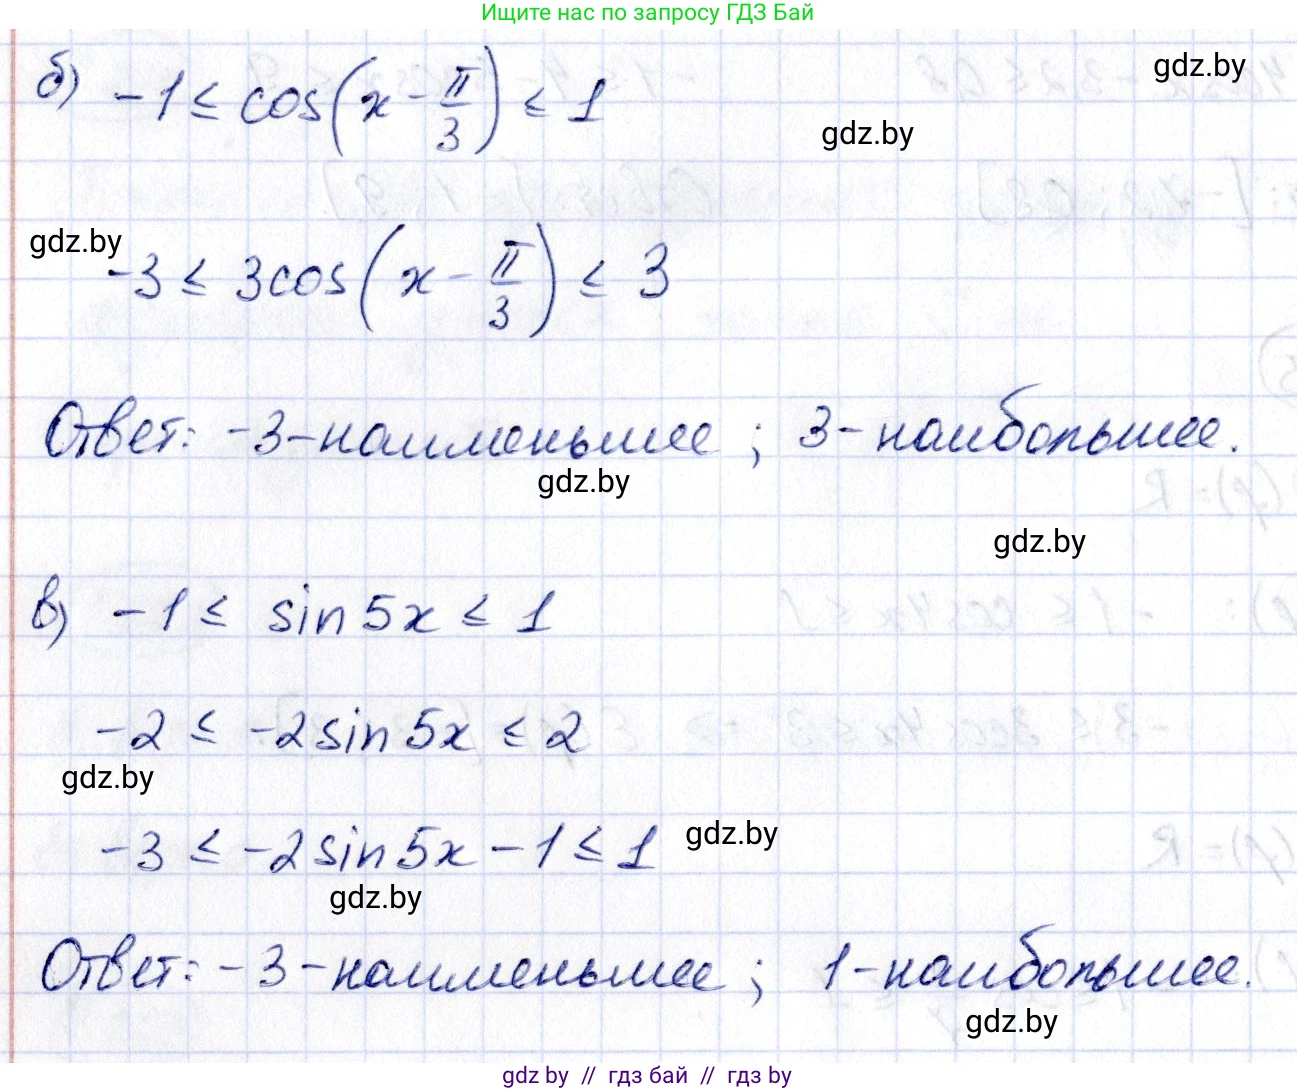 Ищите нас по запросу ГДЗ Бай
gdz.by
б) -1 ≤ cos(x - π/3) ≤ 1
gdz.by
gdz.by
-3 ≤ 3cos(x - π/3) ≤ 3
Ответ: -3 - наименьшее ; 3 - наибольшее.
gdz.by
gdz.by
в) -1 ≤ sin5x ≤ 1
-2 ≤ -2sin5x ≤ 2
gdz.by
-3 ≤ -2sin5x - 1 ≤ 1
gdz.by
gdz.by
Ответ: -3 - наименьшее ; 1 - наибольшее.
gdz.by
gdz by // гдз бай // гдз by